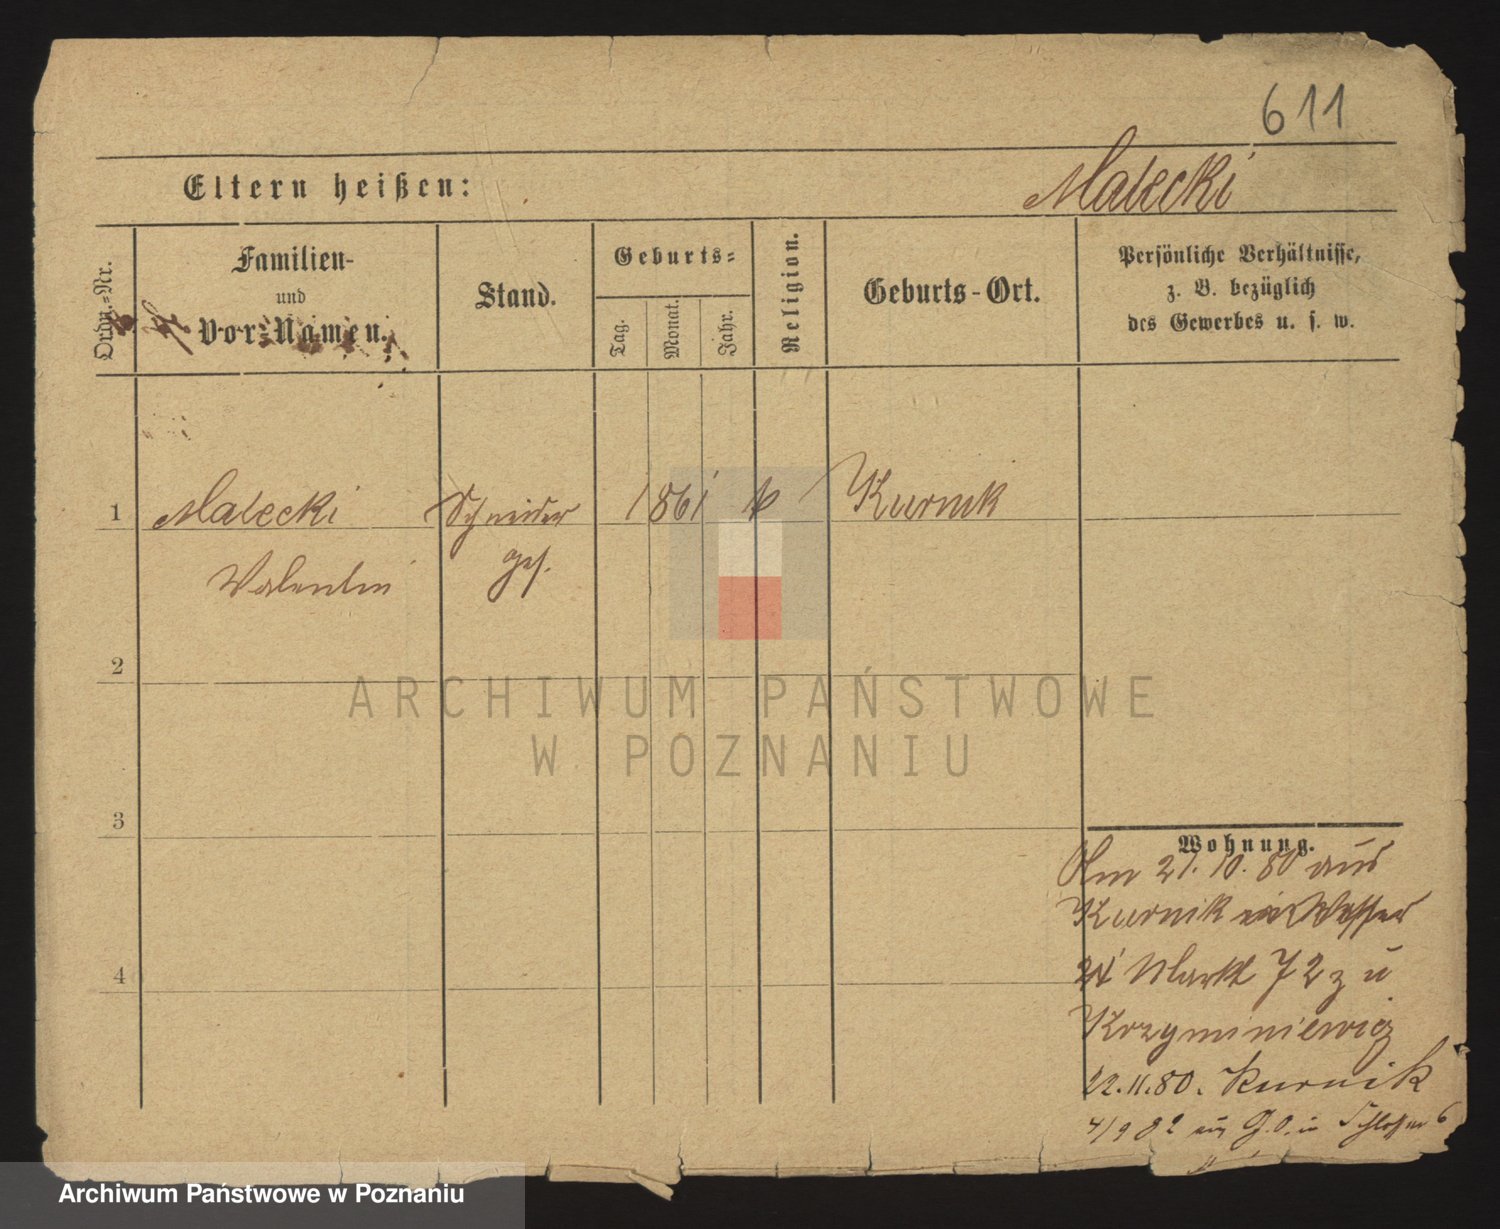 611
Eltern heißen:
Malecki
Ordn.-Nr.
Familien-
und
Vor-Namen.
Stand.
Geburts-
Tag.
Monat.
Jahr.
Religion.
Geburts-Ort.
Persönliche Verhältnisse,
z. B. bezüglich
des Gewerbes u. s. w.
1
Malecki
Schneider
1861
k
Kurnik
Valentin
ges.
2
ARCHIWUM PAŃSTWOWE
W POZNANIU
3
Wohnung.
Am 21.10.80 aus
Kurnik
4
Markt 72 zu
Krzyminiewicz
22.11.80. Kurnik
4/9 82 aus G.O. in 6
Archiwum Państwowe w Poznaniu